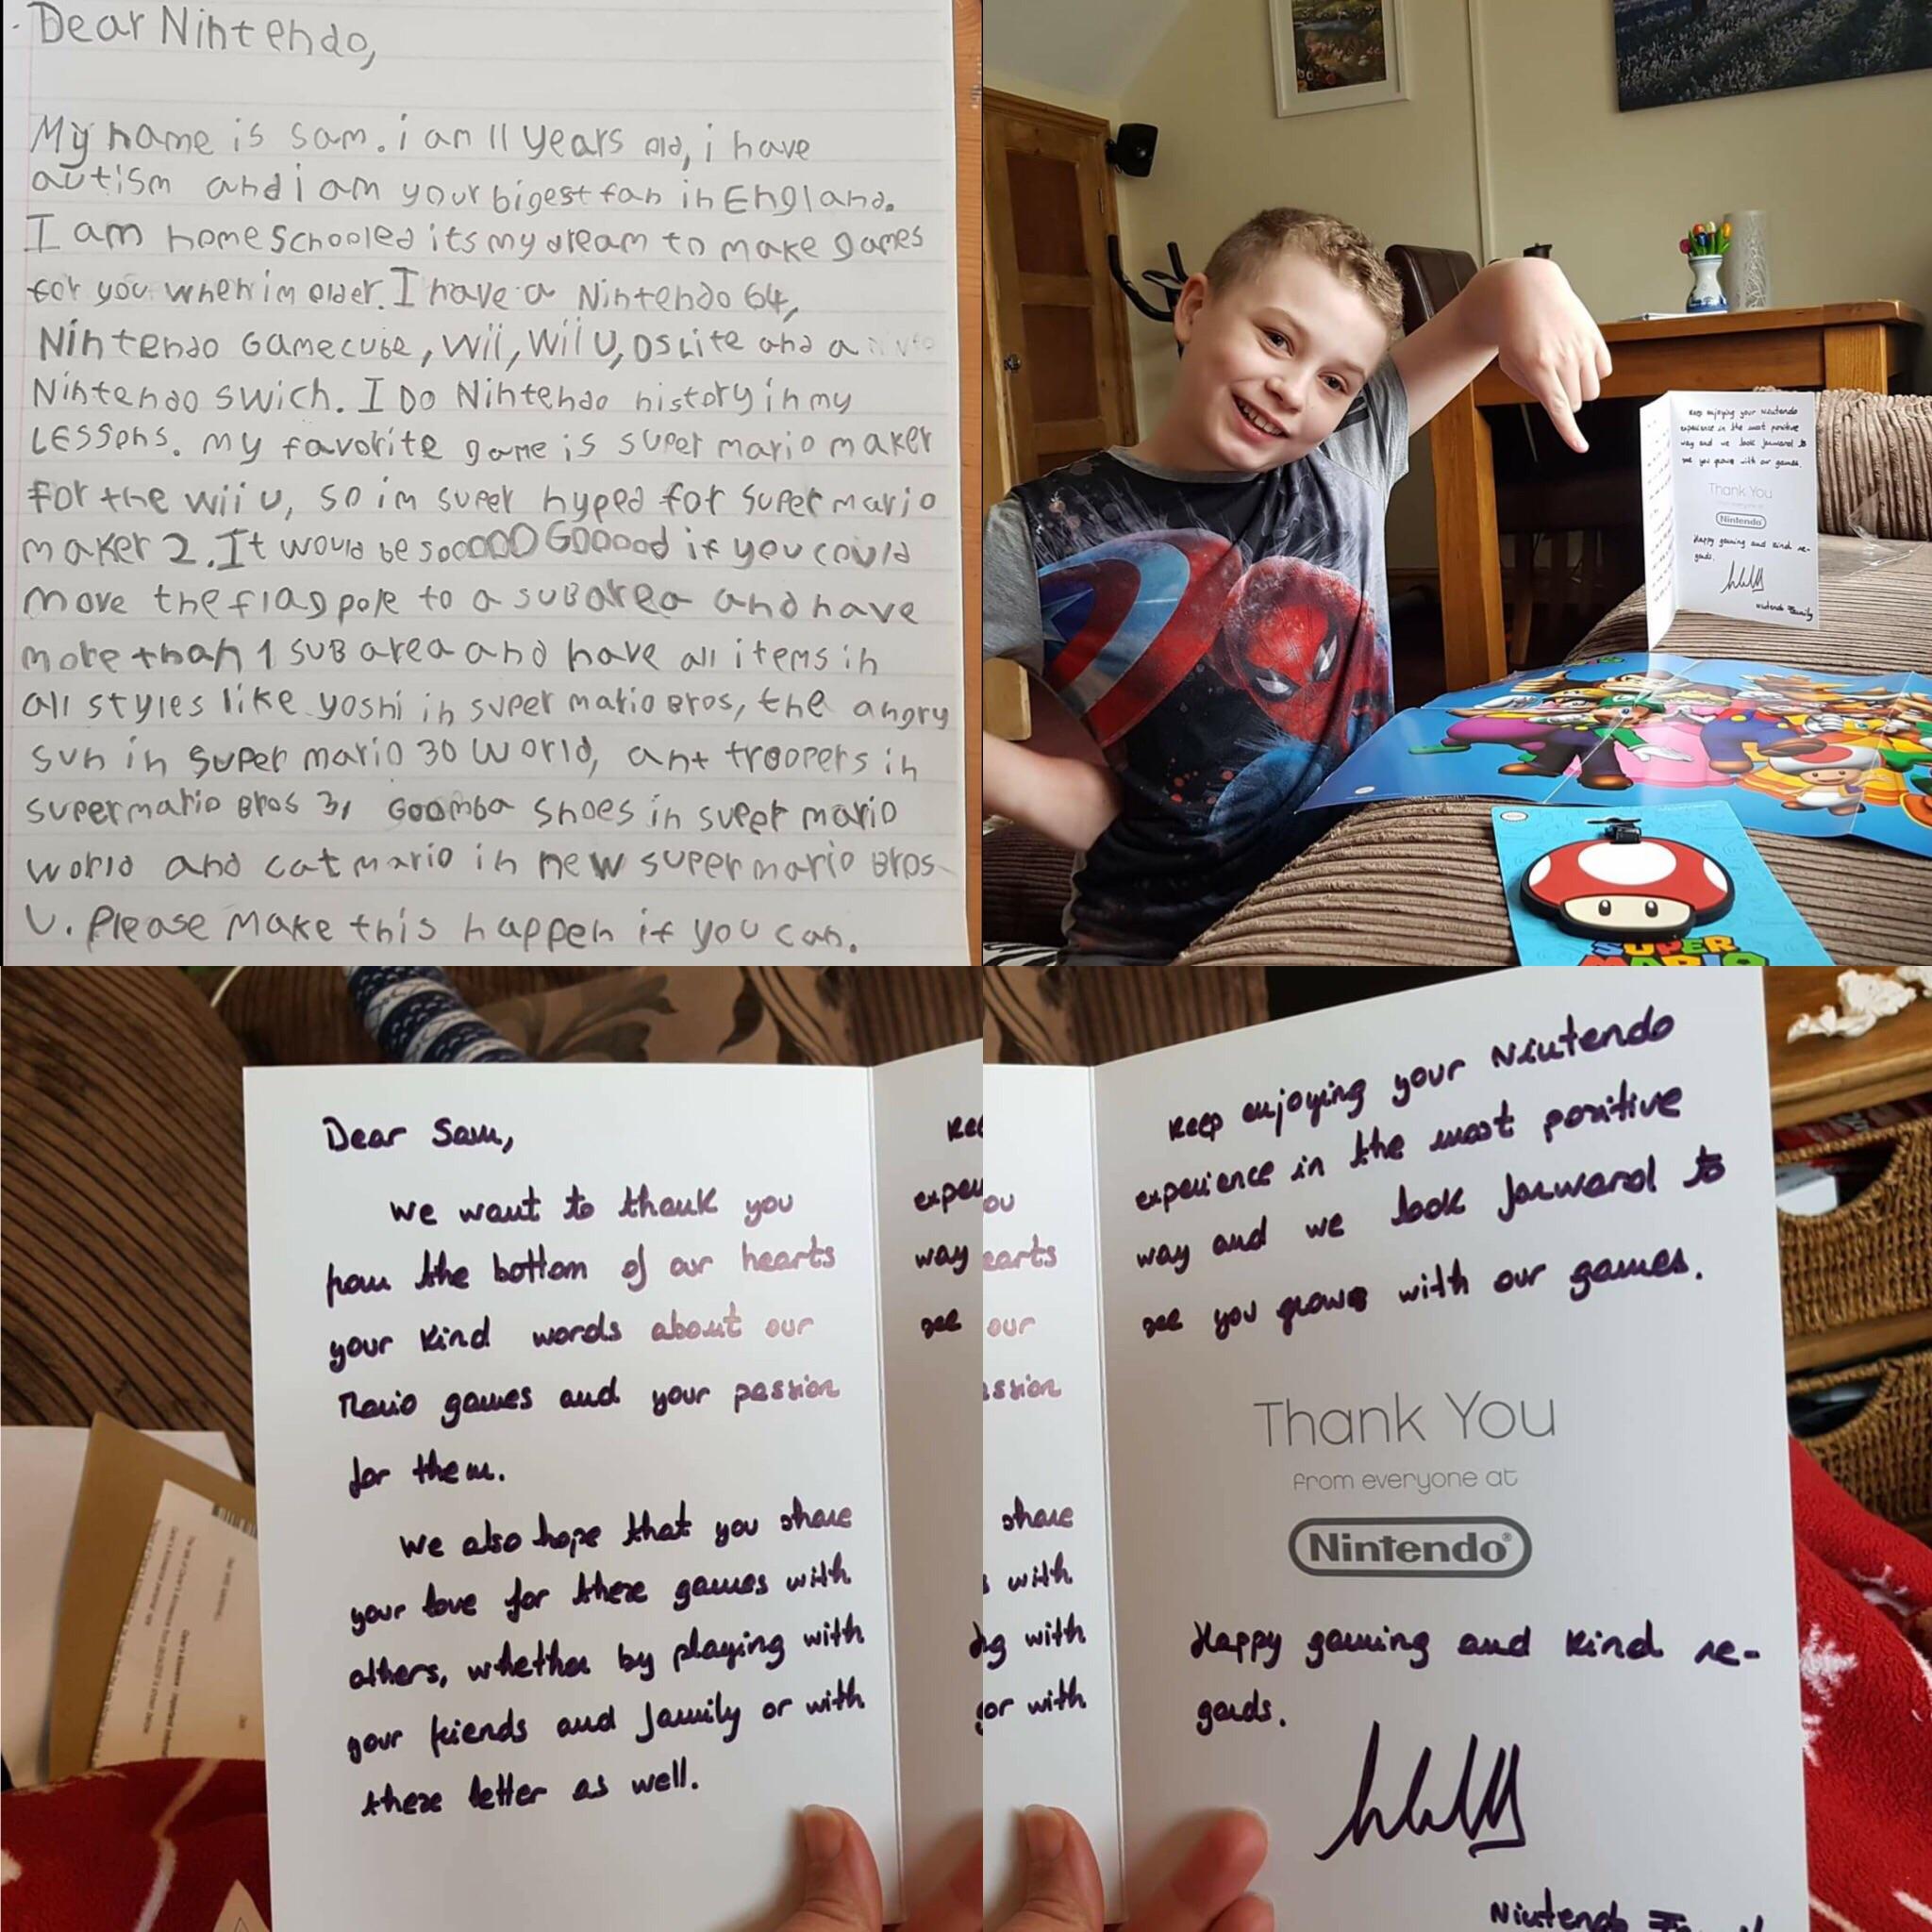 Dear Nintendo,
My name is sam. i am 11 years old, i have
autism and i am your bigest fan in England.
I am homeschooled its my dream to make games
for you when im older. I have a Nintendo 64,
Nintendo Gamecube, Wii, Wii U, DS Lite and a
Nintendo swich. I Do Nintendo history in my
LESSons. my favorite game is super mario maker
for the wii U, so im super hyped for super mario
maker 2. It would be sooOOO GOoood if you could
move the flagpole to a sub area and have
more than 1 sub area and have all items in
all styles like yoshi in super mario Bros, the angry
sun in super mario 3D world, ant troopers in
super mario Bros 3, Goomba shoes in super mario
world and cat mario in new super mario Bros
U. Please make this happen if you can.
Keep enjoying your Nintendo
experience in the most positive
way and we look forward to
see you grows with our games.
Thank You
Nintendo
Happy gaming and kind re-
gards.
Nintendo Family
SUPER
MARIO
Dear Sam,
We want to thank you
from the bottom of our hearts
your kind words about our
Mario games and your passion
for them.
We also hope that you share
your love for these games with
others, whether by playing with
your friends and family or with
these letter as well.
expe
way
see
ou
earts
our
ssion
share
with
ng with
or with
Keep enjoying your Nintendo
experience in the most positive
way and we look forward to
see you grows with our games.
Thank You
from everyone at
Nintendo®
Happy gaming and kind re-
gards.
Nintendo